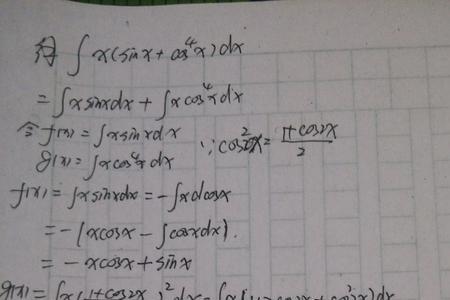 得 ∫x(sinx+cos⁴x)dx
=∫xsinxdx+∫xcos⁴xdx
令f(x)=∫xsinxdx ∵cos²x=(1+cos2x)/2
g(x)=∫xcos⁴xdx
f(x)=∫xsinxdx=-∫xdcosx
=-(xcosx-∫cosxdx).
=-xcosx+sinx
g(x)=∫x(1+cos2x